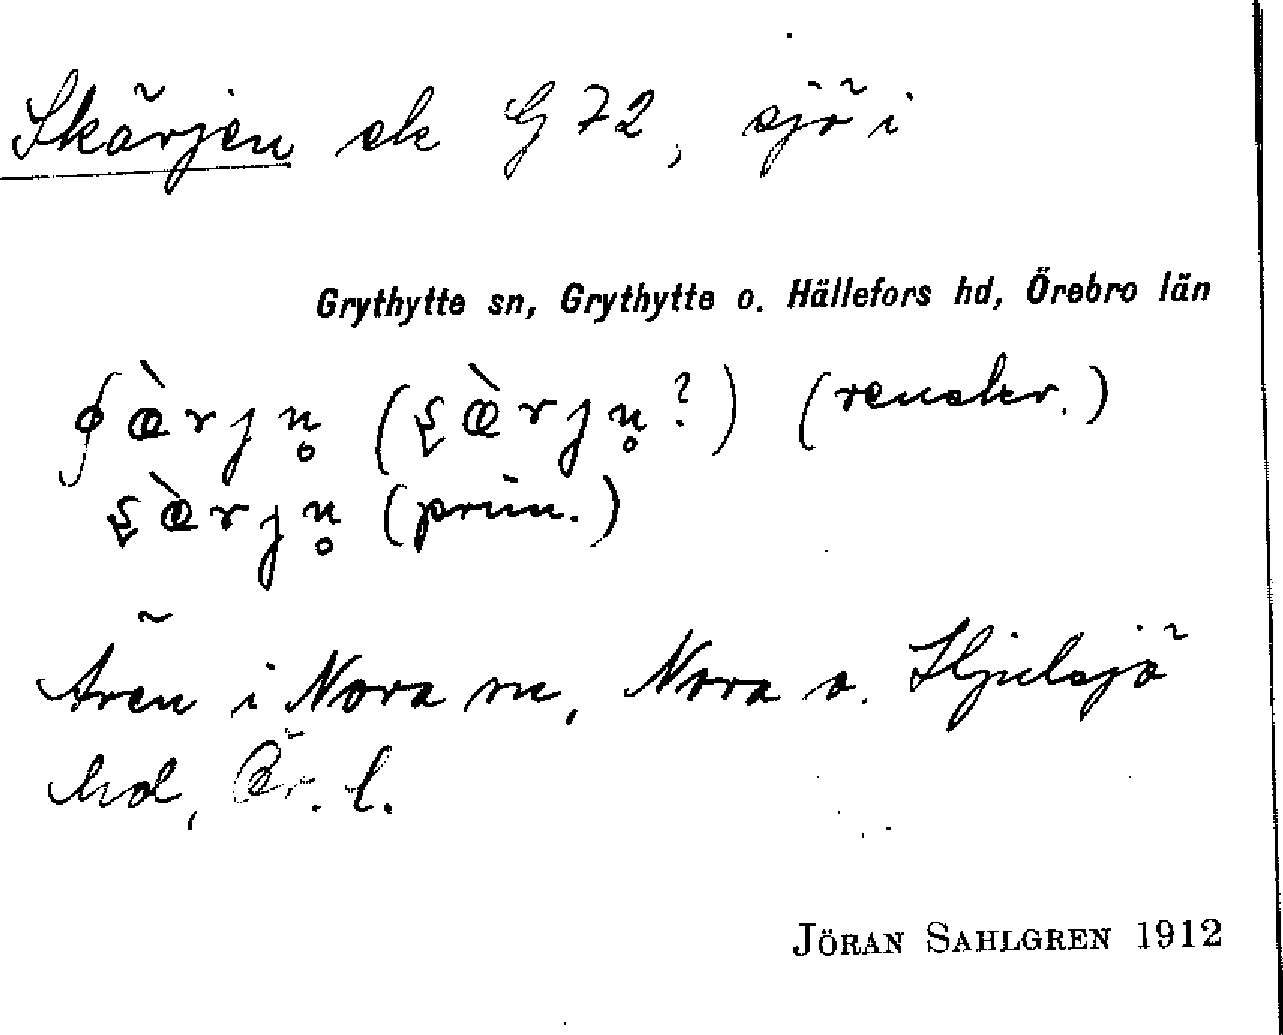 Skärjen ek G 72, sjö i
Grythytte sn, Grythytte o. Hällefors hd, Örebro län
(renskr.)
(prim.)
Ären i Nora sn, Nora o. Hjulsjö
hd, Ör. l.
JÖRAN SAHLGREN 1912